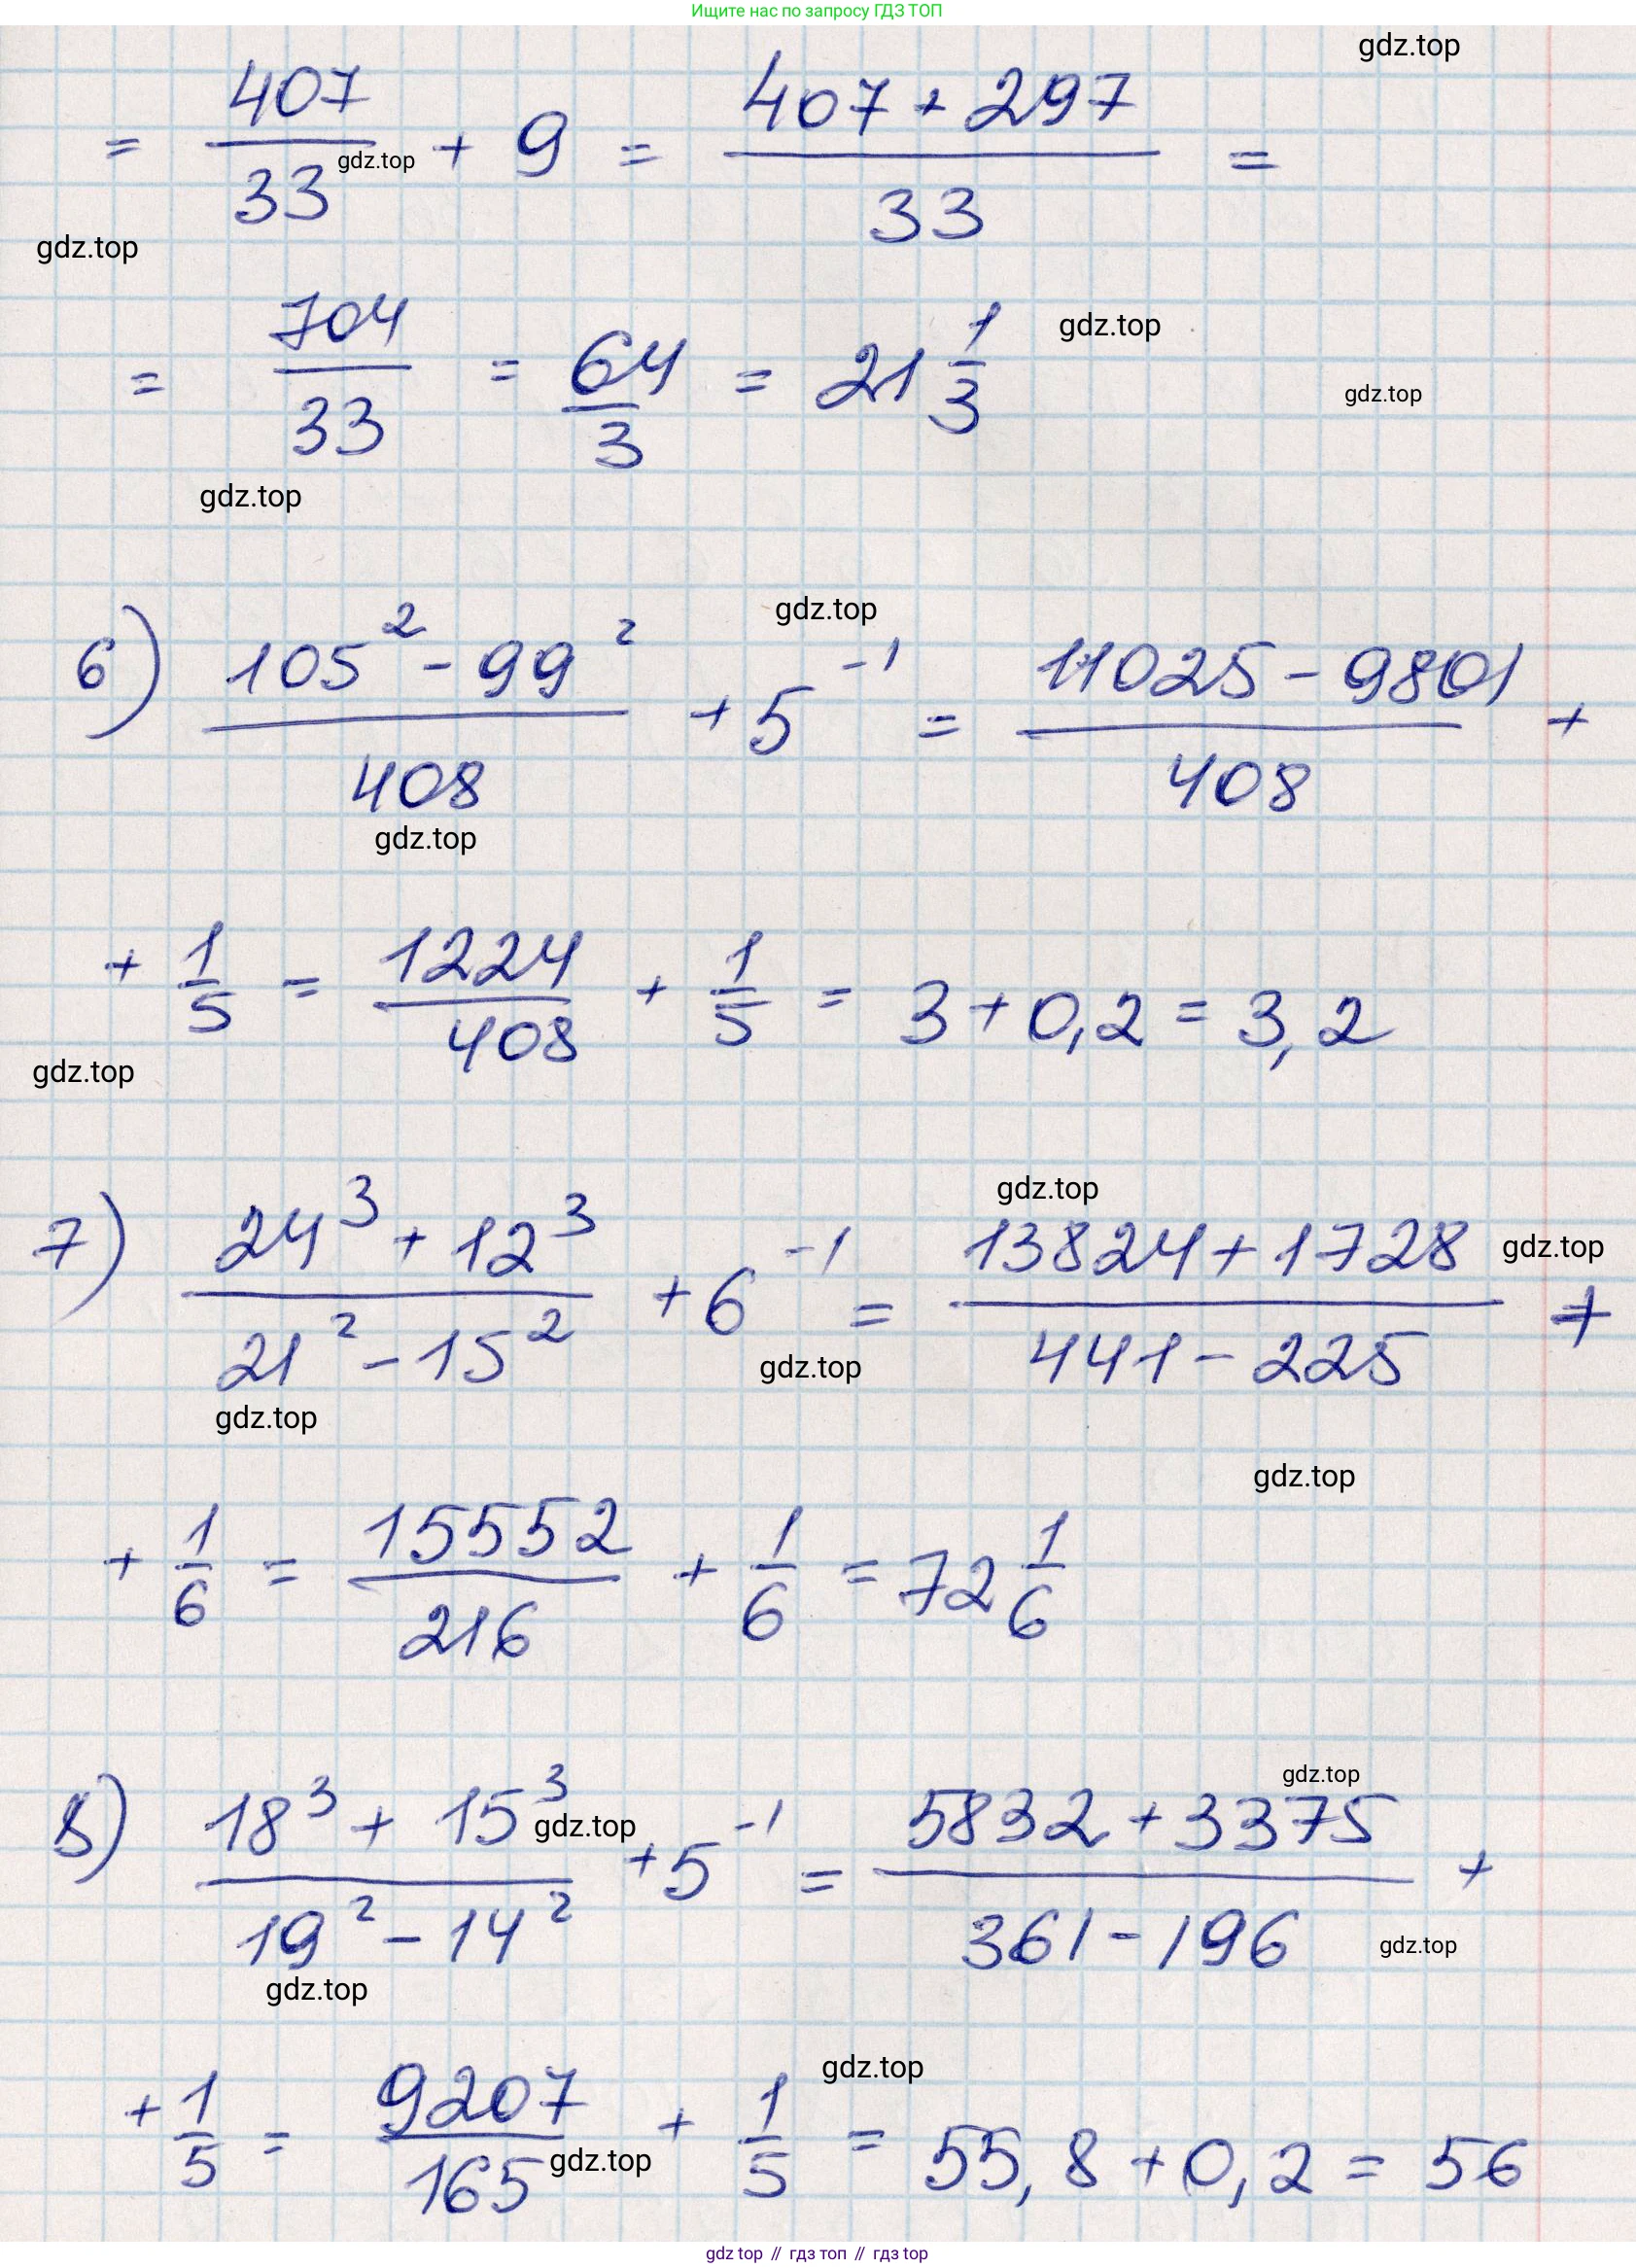 Ищите нас по запросу ГДЗ ТОП
gdz.top
= 407/33 + 9 = (407 + 297)/33 =
gdz.top
gdz.top
= 704/33 = 64/3 = 21 1/3
gdz.top
gdz.top
gdz.top
gdz.top
6) (105² - 99²)/408 + 5⁻¹ = (11025 - 9801)/408 +
gdz.top
+ 1/5 = 1224/408 + 1/5 = 3 + 0,2 = 3,2
gdz.top
gdz.top
7) (24³ + 12³)/(21² - 15²) + 6⁻¹ = (13824 + 1728)/(441 - 225) +
gdz.top
gdz.top
gdz.top
gdz.top
+ 1/6 = 15552/216 + 1/6 = 72 1/6
gdz.top
8) (18³ + 15³)/(19² - 14²) + 5⁻¹ = (5832 + 3375)/(361 - 196) +
gdz.top
gdz.top
gdz.top
gdz.top
+ 1/5 = 9207/165 + 1/5 = 55,8 + 0,2 = 56
gdz.top
gdz top // гдз топ // гдз top